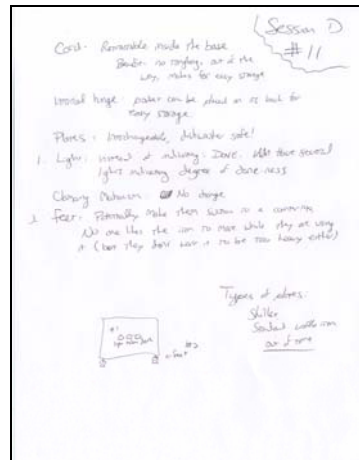 Session D
#11
Cord - Removable inside the base
Benefit - no tangling, out of the
way, makes for easy storage
Internal hinge: can be placed on its back for
easy storage.
Plates: Interchangeable, dishwater safe!
1. Light: instead of indicating Done. have several
lights indicating degree of done-ness
Closing Mechanism: No change
2. Feet: Potentially make them suction to a countertop
No one likes the iron to move while they are using
it (but they don't want it to be too heavy either)
Types of plates:
Skillet
Standard waffle iron
#1
#2
feet